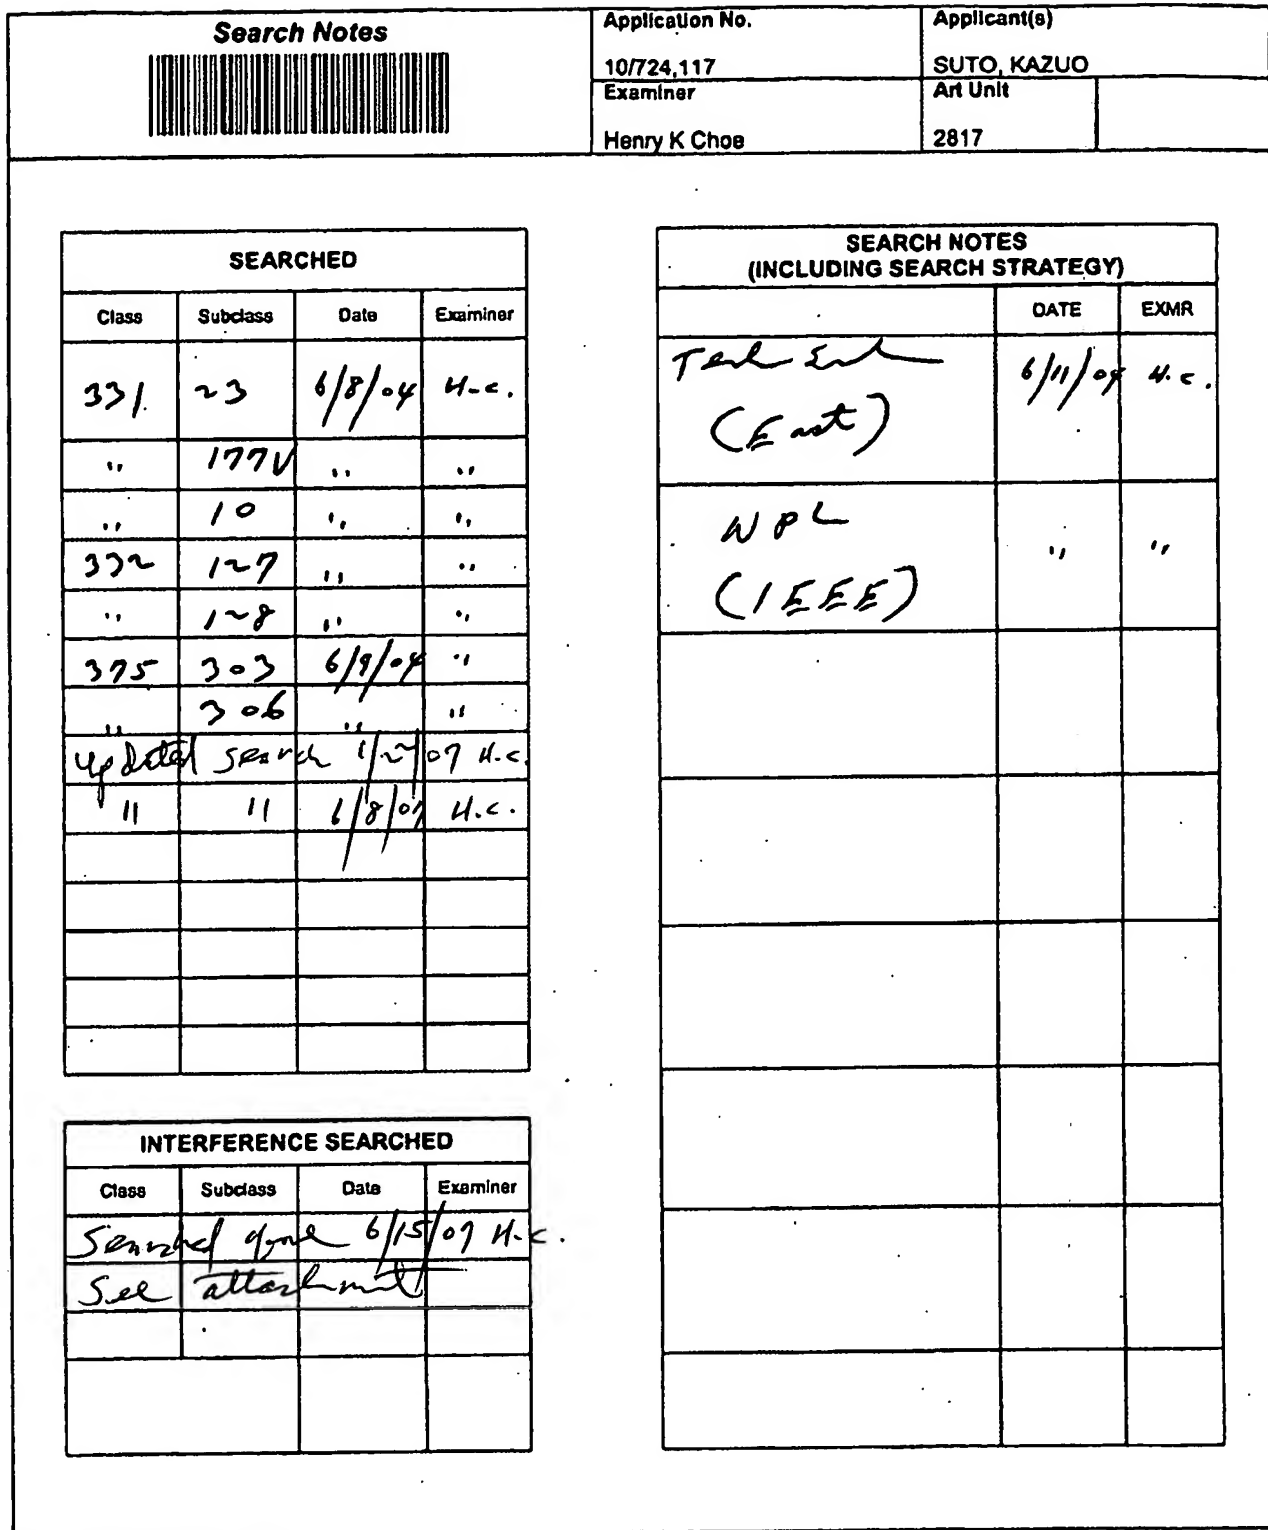 Search Notes
Application No.
10/724,117
Applicant(s)
SUTO, KAZUO
Examiner
Henry K Choe
Art Unit
2817
SEARCHED
Class Subclass Date Examiner
331 23 6/8/04 H.C.
" 177V " "
" 10 " "
332 127 " "
" 128 " "
375 303 6/9/04 "
" 306 " "
updated search 1/22/07 H.C.
" " 6/8/07 H.C.
INTERFERENCE SEARCHED
Class Subclass Date Examiner
6/15/07 H.C.
See attachment
SEARCH NOTES
(INCLUDING SEARCH STRATEGY)
DATE EXMR
6/11/04 H.C.
(East)
NPL " "
(IEEE)